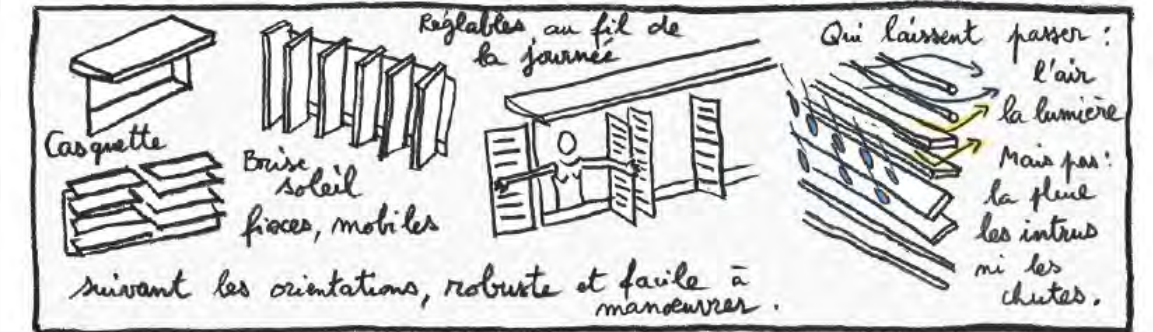 Casquette
Brise
soleil
fixes, mobiles
Réglables, au fil de
la journée
Qui laissent passer :
l'air
la lumière
Mais pas :
la pluie
les intrus
ni les
chutes.
suivant les orientations, robuste et facile à
manœuvrer.